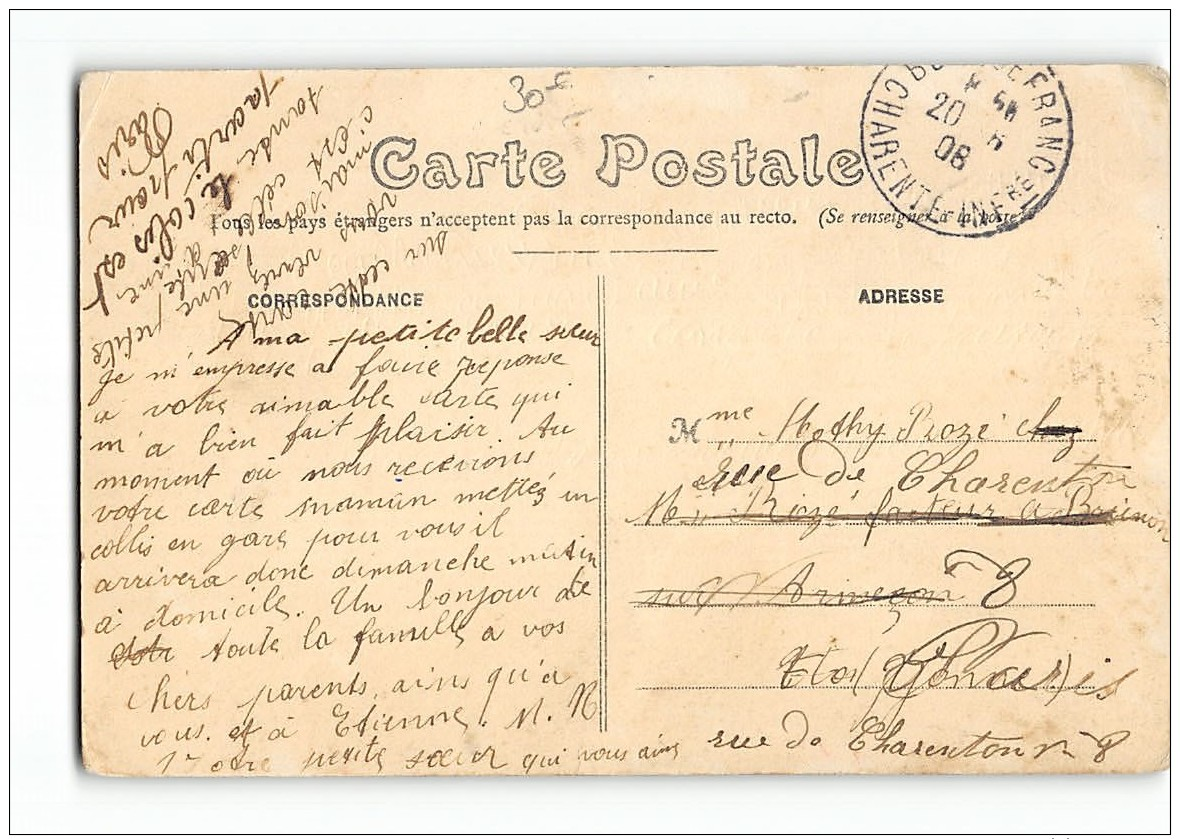 30 F
Carte Postale
Tous les pays étrangers n'acceptent pas la correspondance au recto. (Se renseigner à la poste)
FRANC
CHARENTE-INFRE
20
08
CORRESPONDANCE
ADRESSE
Paris
pour
le colis est
la carte
tombe
c'est celle
maison
vous verrez
sur cette carte
une petite
A ma petite belle sœur
Je m'empresse a faire reponse
a votre aimable carte qui
m'a bien fait plaisir. Au
moment où nous recevions
votre carte maman mettez un
collis en gare pour vous il
arrivera donc dimanche matin
à domicile. Un bonjour de
toute la famille a vos
chers parents ainsi qu'a
vous. et à Etienne. M. R
Votre petite sœur qui vous aime
Mme Mothy Rozé chez
rue de Charenton
Mr Rozé facteur a Brinon
sur Armençon 8
Paris
rue de Charenton n° 8